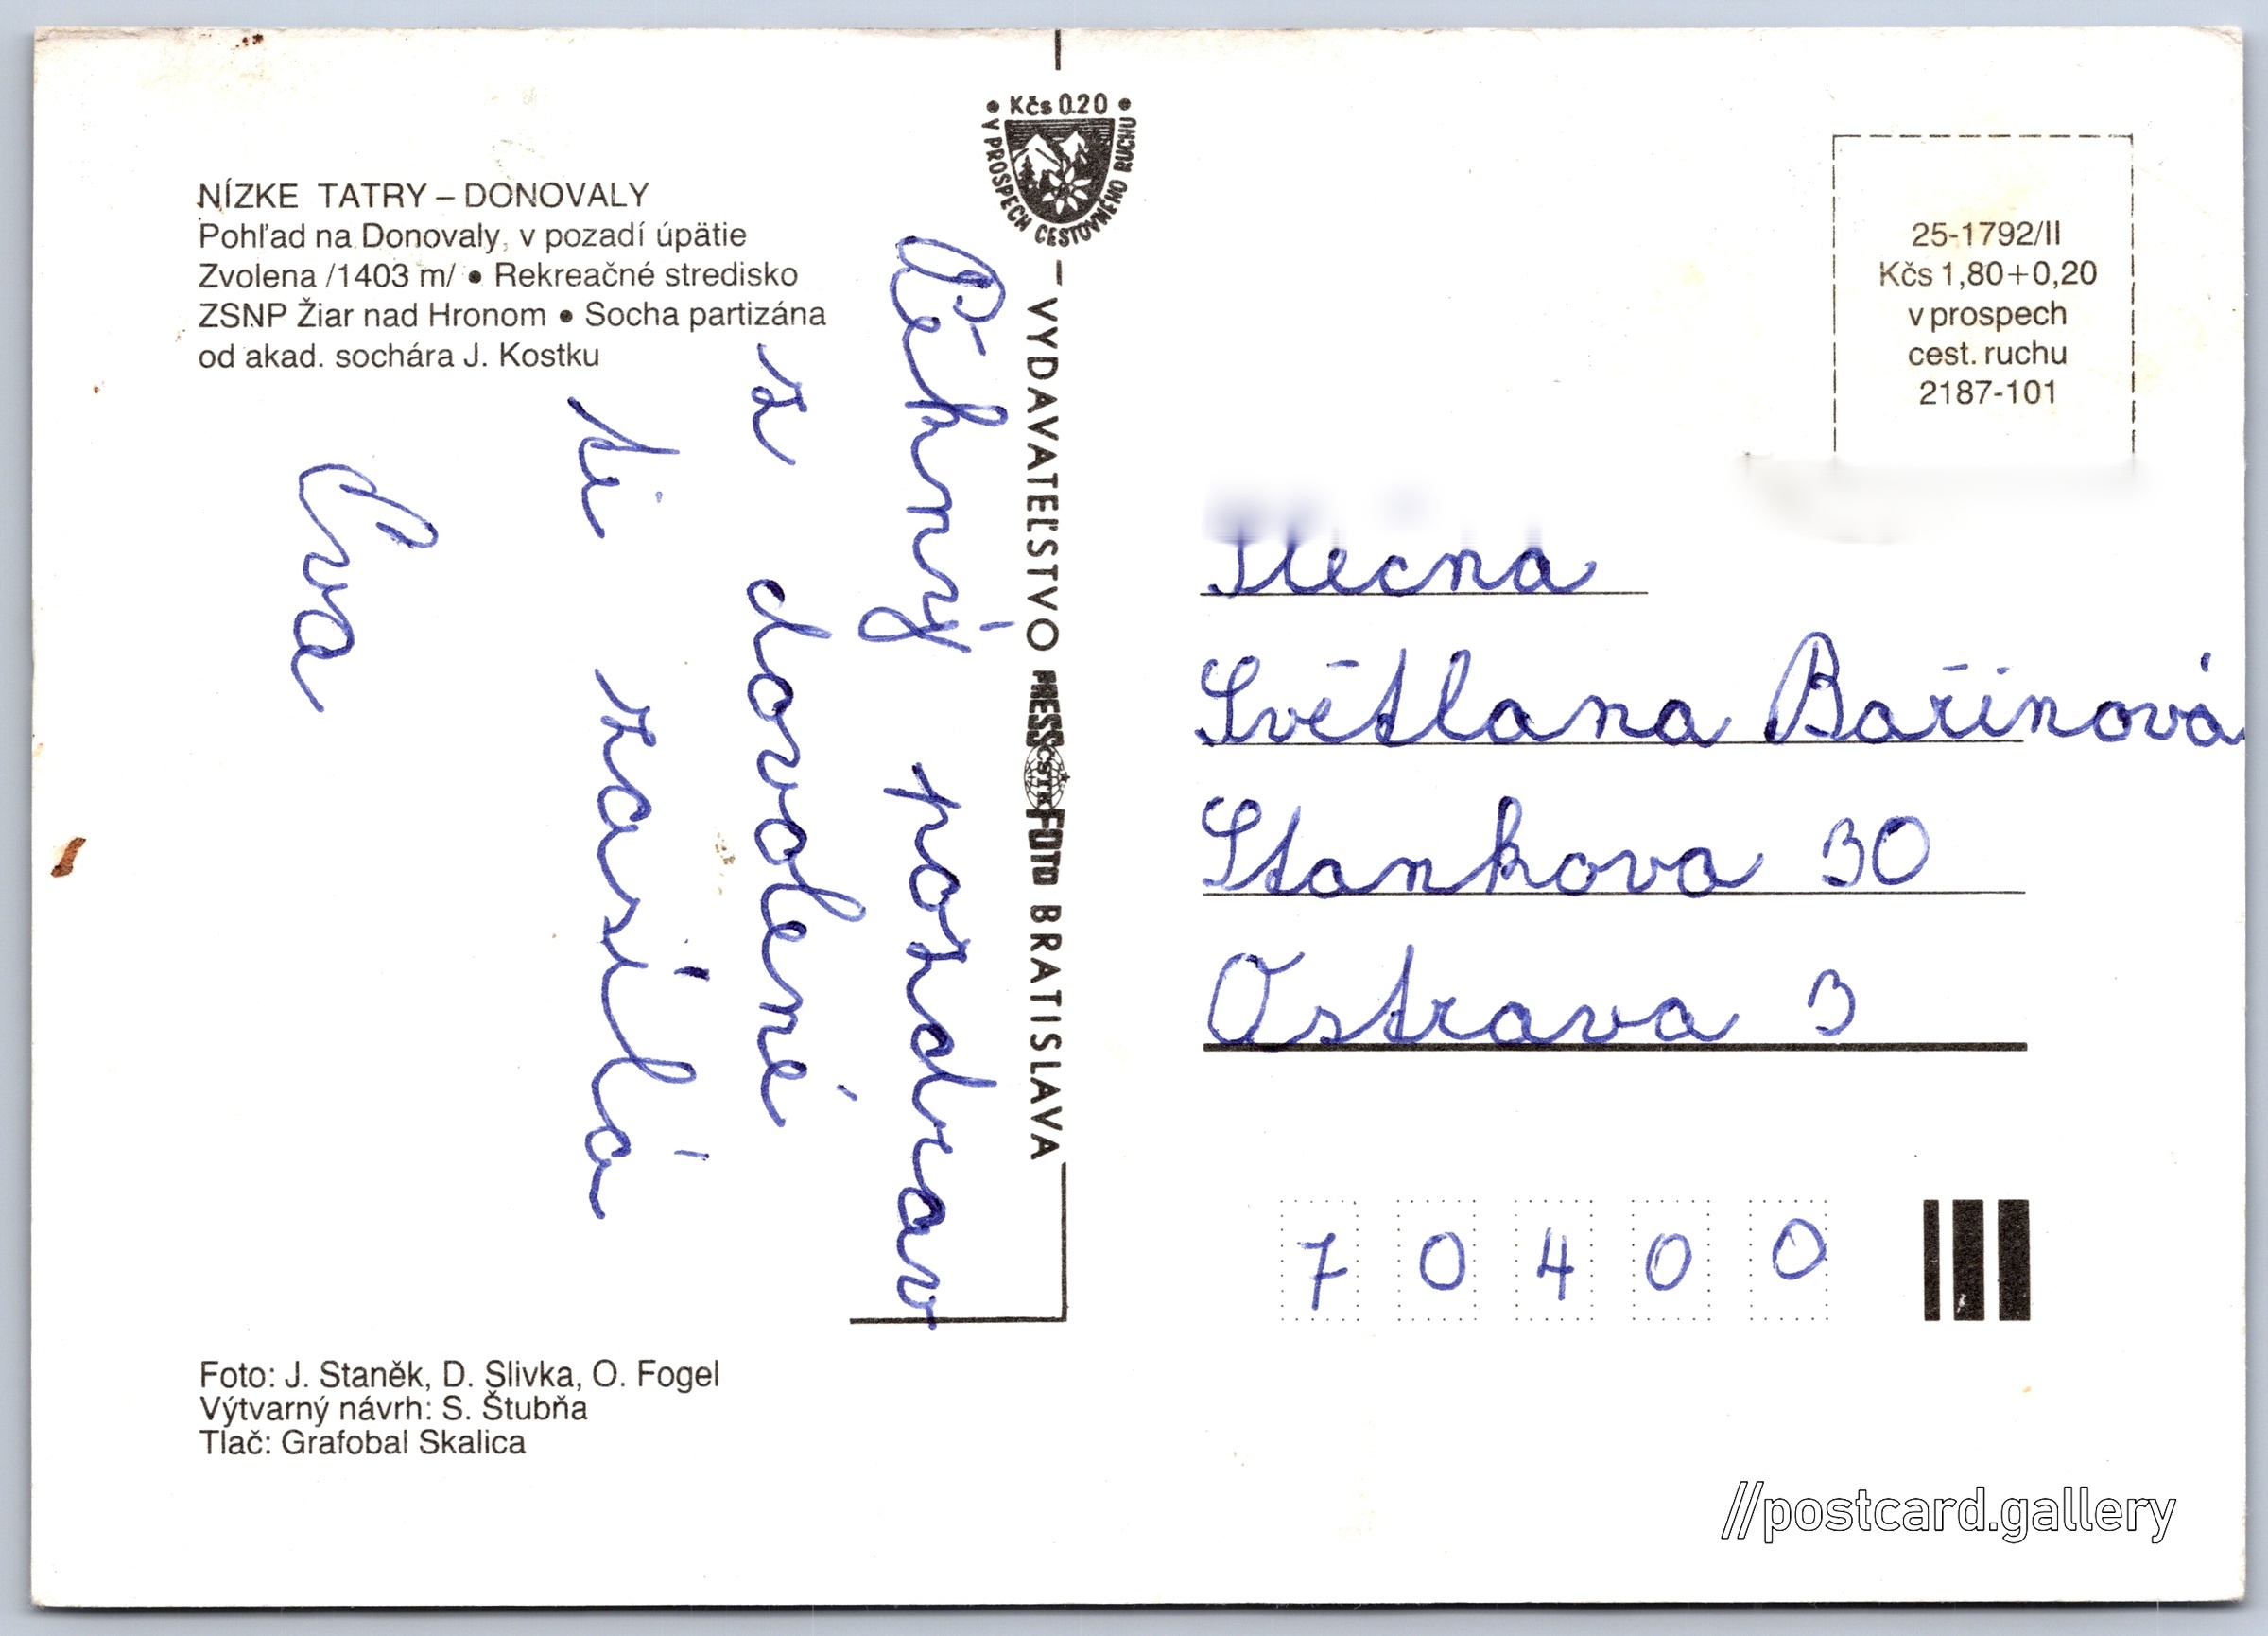 NÍZKE TATRY – DONOVALY
Pohľad na Donovaly, v pozadí úpätie
Zvolena /1403 m/ • Rekreačné stredisko
ZSNP Žiar nad Hronom • Socha partizána
od akad. sochára J. Kostku
Pěkný pozdrav
z dovolené
ti zasílá
Eva
Foto: J. Staněk, D. Slivka, O. Fogel
Výtvarný návrh: S. Štubňa
Tlač: Grafobal Skalica
• Kčs 0.20 •
V PROSPECH CESTOVNÉHO RUCHU
– VYDAVATEĽSTVO PRESSFOTO BRATISLAVA
ČSTK
25-1792/II
Kčs 1,80+0,20
v prospech
cest. ruchu
2187-101
Slečna
Světlana Bařinová
Stankova 30
Ostrava 3
7 0 4 0 0
//postcard.gallery